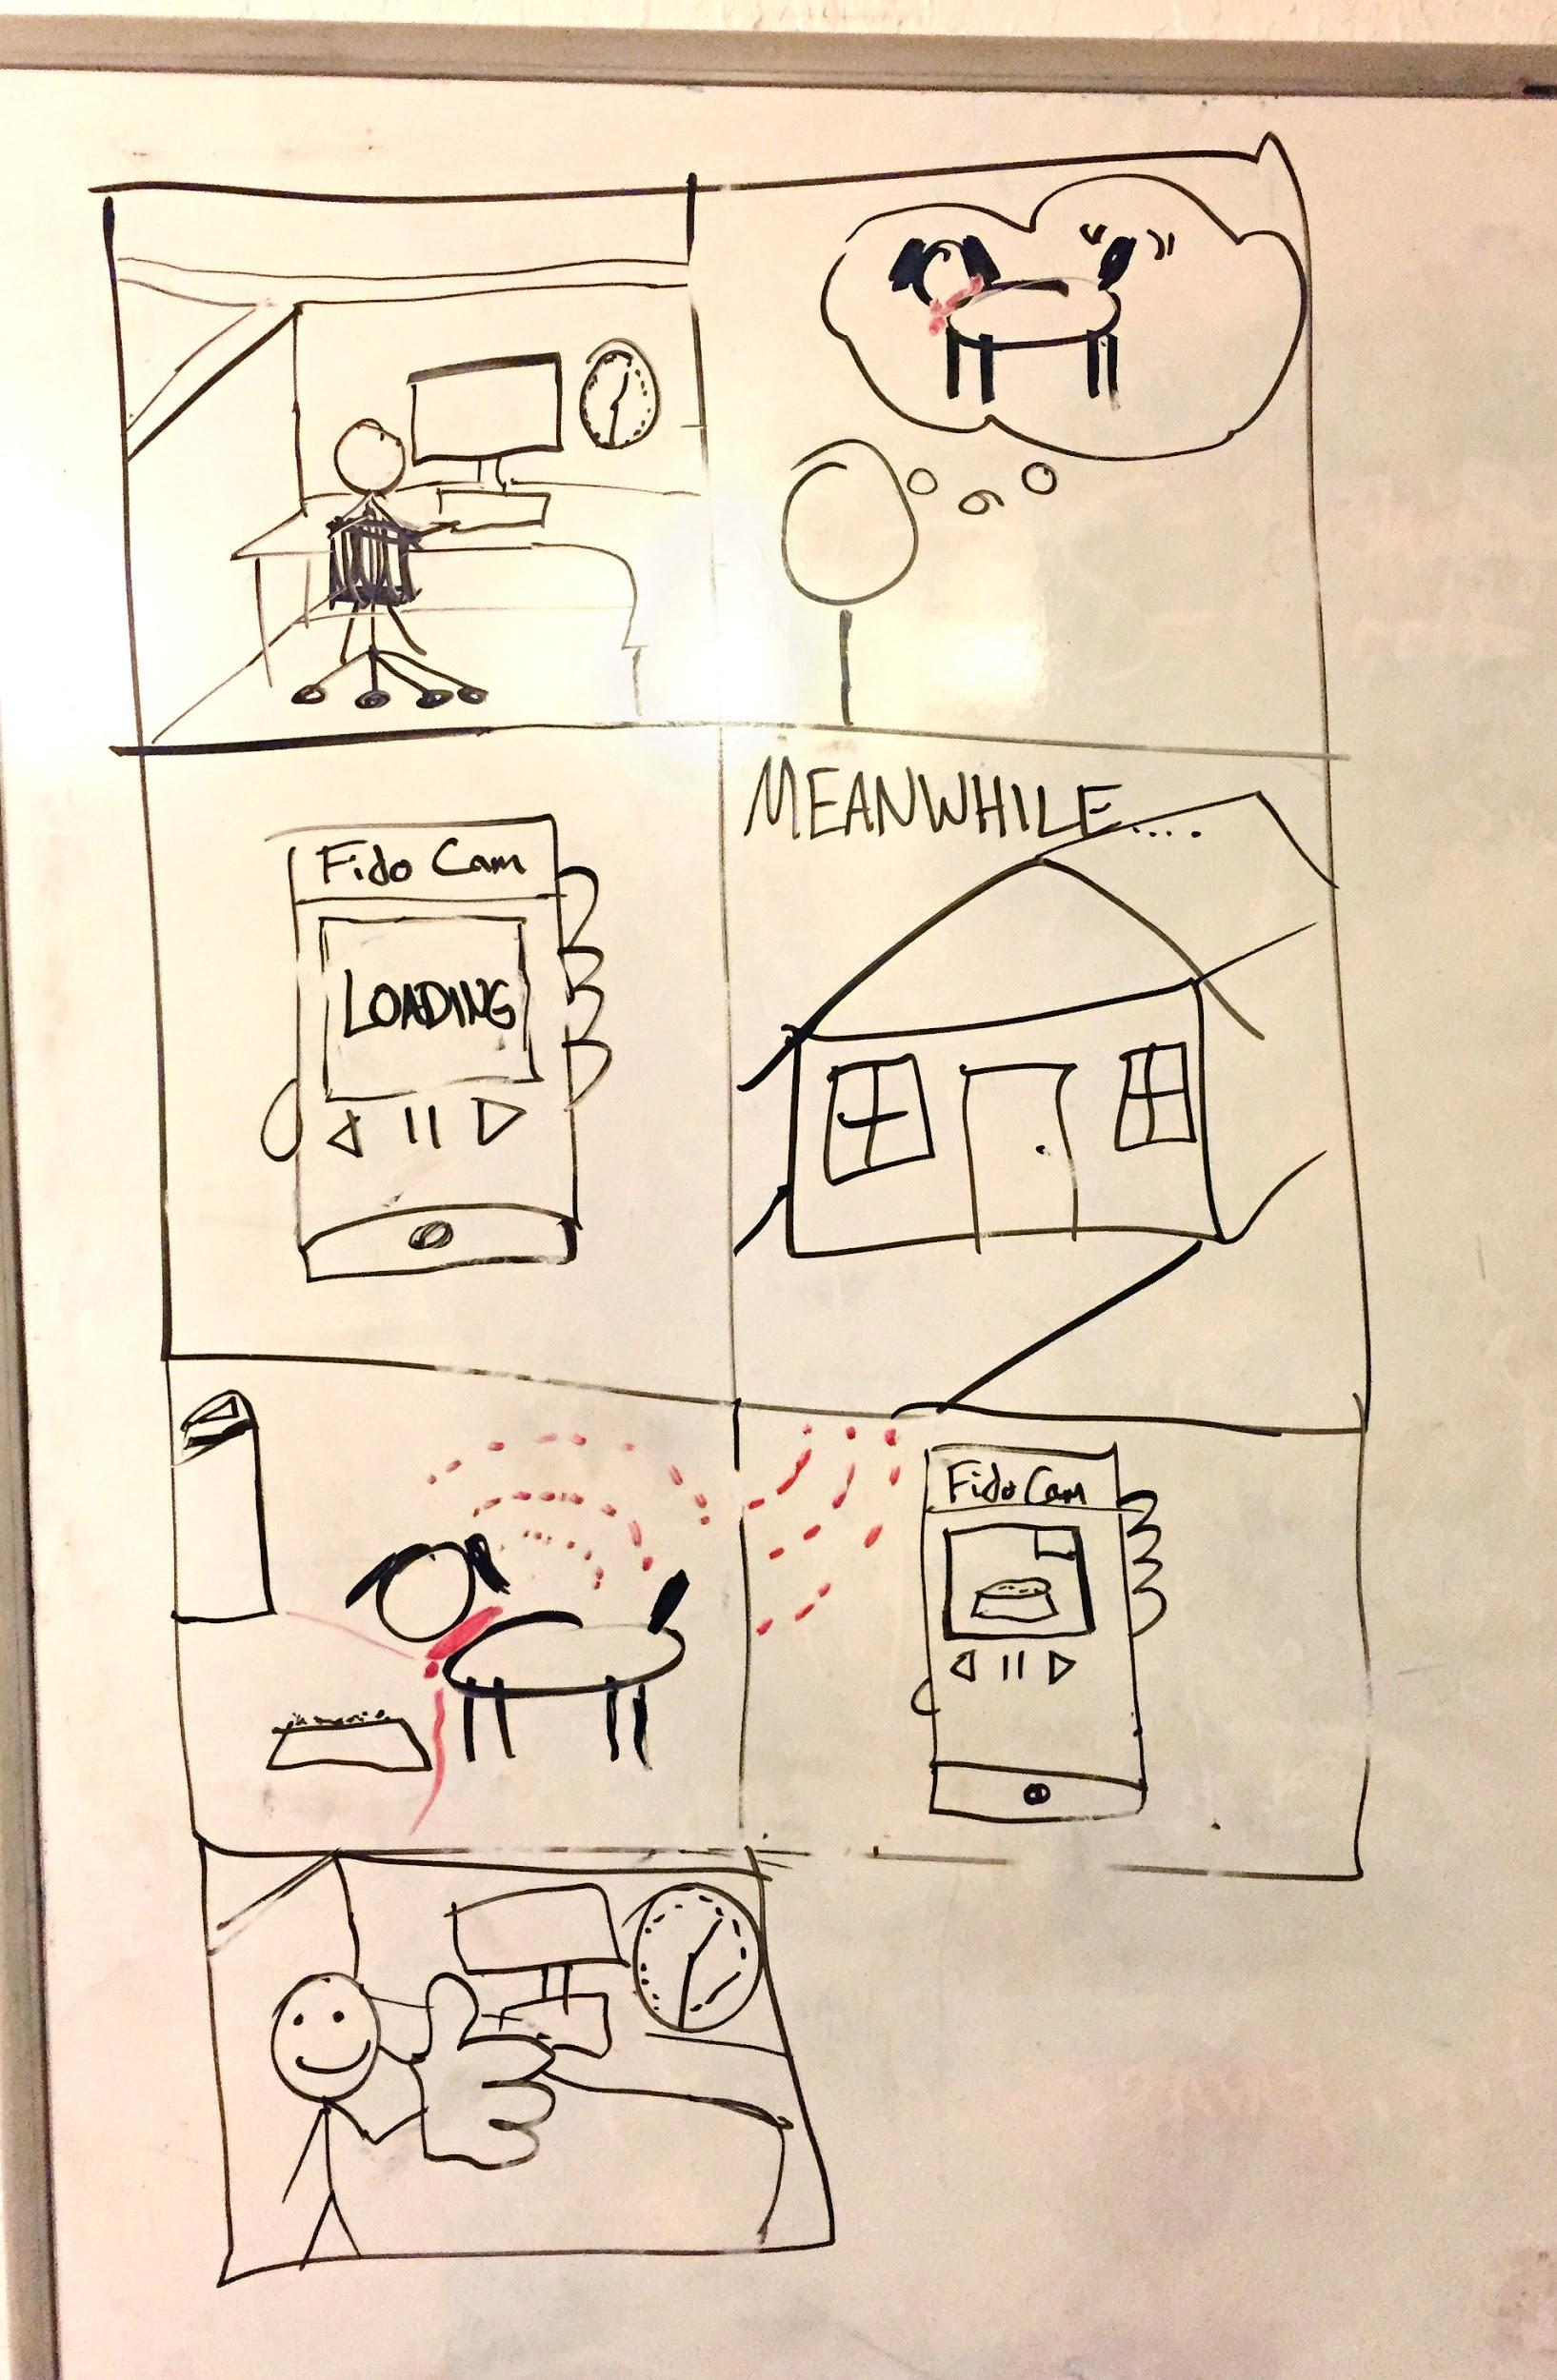 Fido Cam
LOADING
MEANWHILE....
Fido Cam